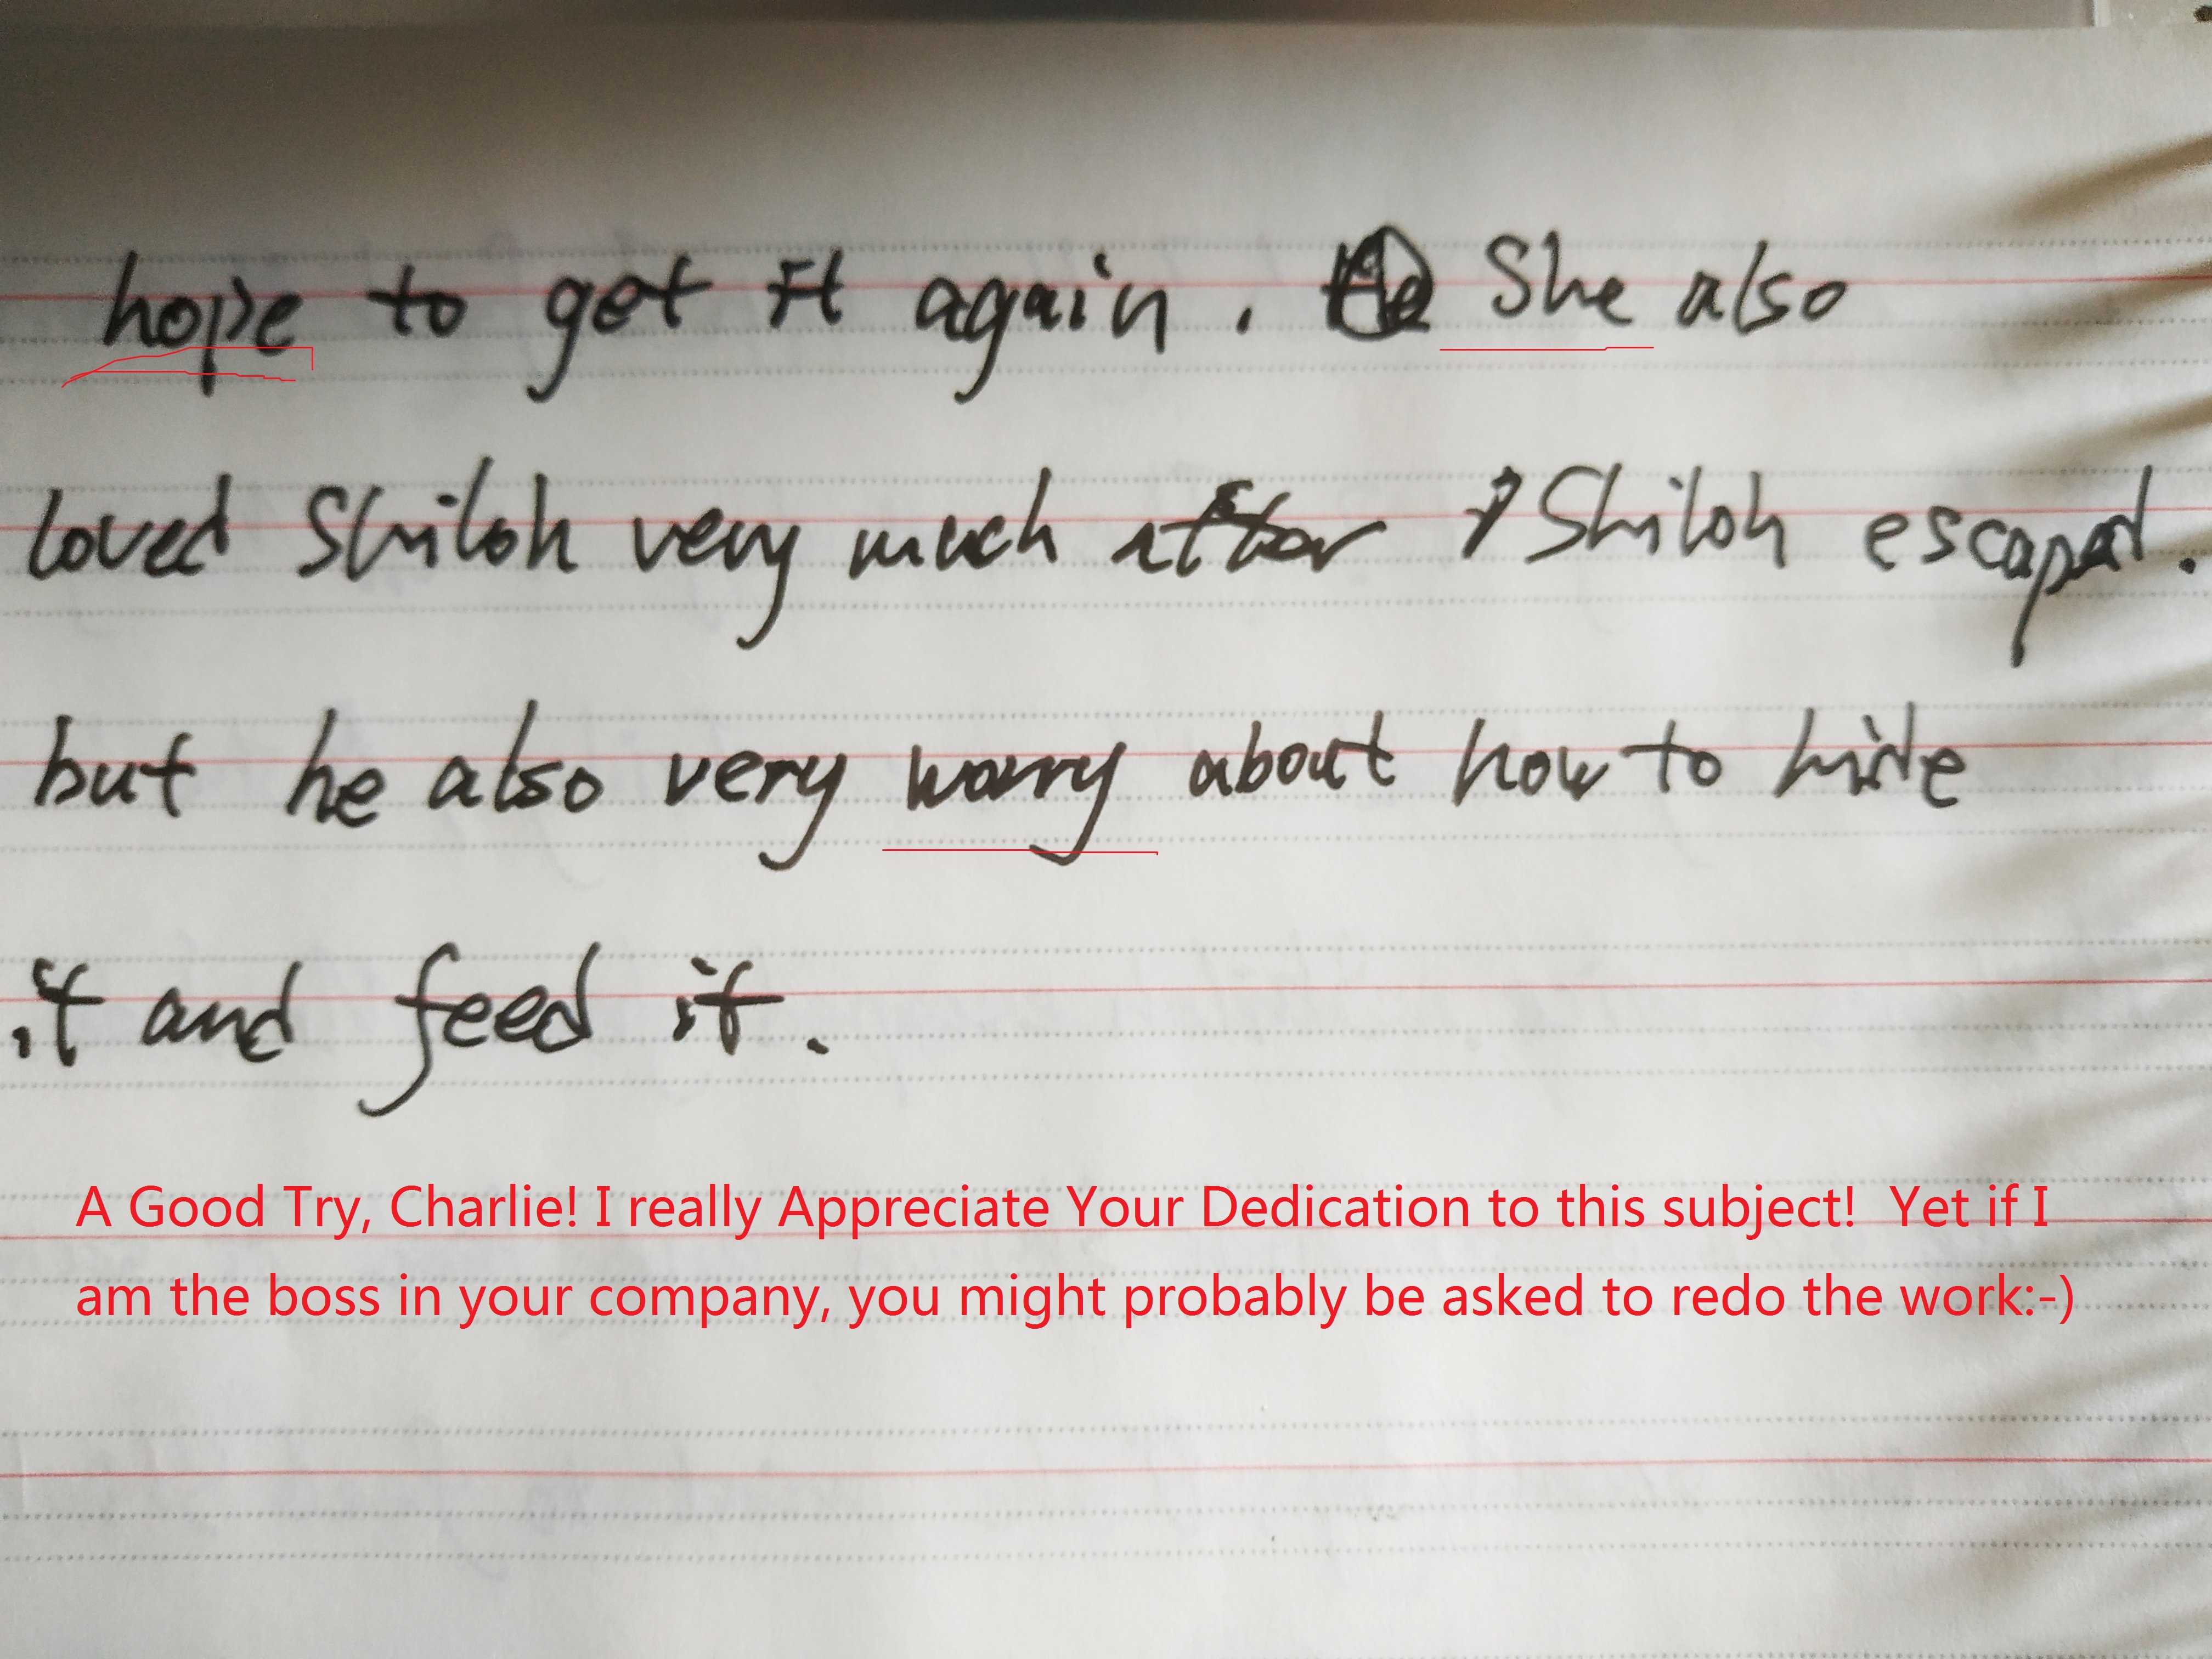 hope to get it again. She also
loved Shiloh very much after Shiloh escaped.
but he also very worry about how to hide
it and feed it.
A Good Try, Charlie! I really Appreciate Your Dedication to this subject! Yet if I
am the boss in your company, you might probably be asked to redo the work:-)